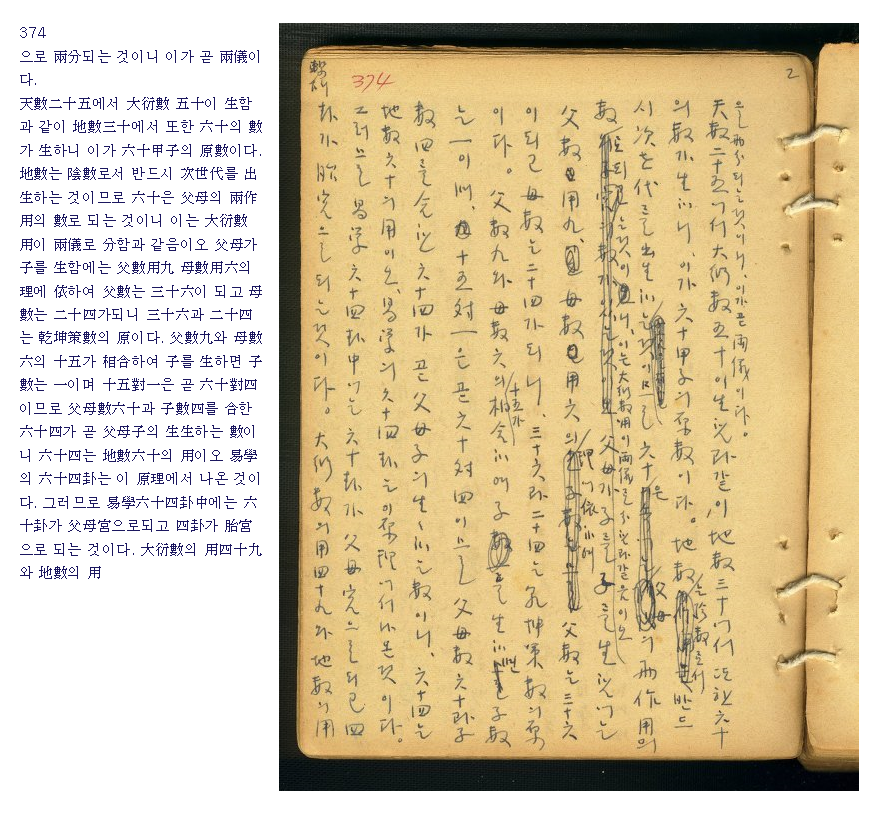 374
으로 兩分되는 것이니 이가 곧 兩儀이
다.
天數二十五에서 大衍數 五十이 生함
과 같이 地數三十에서 또한 六十의 數
가 生하니 이가 六十甲子의 原數이다.
地數는 陰數로서 반드시 次世代를 出
生하는 것이므로 六十은 父母의 兩作
用의 數로 되는 것이니 이는 大衍數
用이 兩儀로 分함과 같음이오 父母가
子를 生함에는 父數用九 母數用六의
理에 依하여 父數는 三十六이 되고 母
數는 二十四가되니 三十六과 二十四
는 乾坤策數의 原이다. 父數九와 母數
六의 十五가 相合하여 子를 生하면 子
數는 一이며 十五對一은 곧 六十對四
이므로 父母數六十과 子數四를 合한
六十四가 곧 父母子의 生生하는 數이
니 六十四는 地數六十의 用이오 易學
의 六十四卦는 이 原理에서 나온 것이
다. 그러므로 易學六十四卦中에는 六
十卦가 父母宮으로되고 四卦가 胎宮
으로 되는 것이다. 大衍數의 用四十九
와 地數의 用
2
374
으로 兩分되는것이니, 이가곧 兩儀이다。
天數二十五에서 大衍數 五十이 生함과같이, 地數三十에서 또한 六十
의 數가 生하니, 이가 六十甲子의 原數이다。地數는 陰數로서 반드
시 次世代를 出生하는것이므로 六十은 父母의 兩作用의
數로 되는것이니, 이는 大衍數用이 兩儀로 分함과같음이오 父母가 子를 生함에는
父數用九, 母數用六의 理에依하여 父數는 三十六
이되고 母數는 二十四가되니, 三十六과 二十四는 乾坤策數의原
이다。父數九와 母數六의 十五가 相合하여 子를 生하면 子數
는 一이며, 十五対一은 곧 六十対四이므로 父母數六十과 子
數四를 合한 六十四가 곧 父母子의 生々하는數이니, 六十四는
地數六十의用이오, 易學의六十四卦는 이原理에서나온것이다。
그러므로 易學六十四卦中에는 六十卦가 父母宮으로되고 四
卦가 胎宮으로되는것이다。大衍數의用四十九와 地數의用